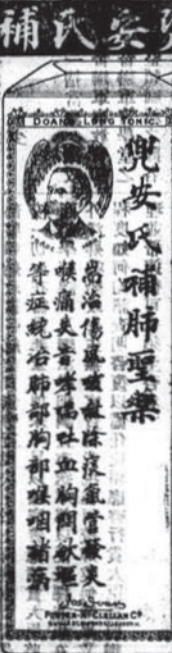 兜安氏補
DOAN'S LUNG TONIC.
兜安氏補肺聖藥
耑治傷風咳嗽除痰氣管發炎
喉痛失音哮喘吐血胸悶欬嗆
等症統治肺部胸部喉咽諸病
FOSTER-McCLELLAN Co